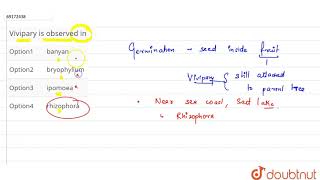 69172558
Vivipary is observed in
Option1 banyan
Option2 bryophyllum
Option3 ipomoea
Option4 rhizophora
Germination - seed inside fruit
Vivipary still attached
to parent tree
• Near sea coast, Salt lake
↳ Rhizophora
doubtnut